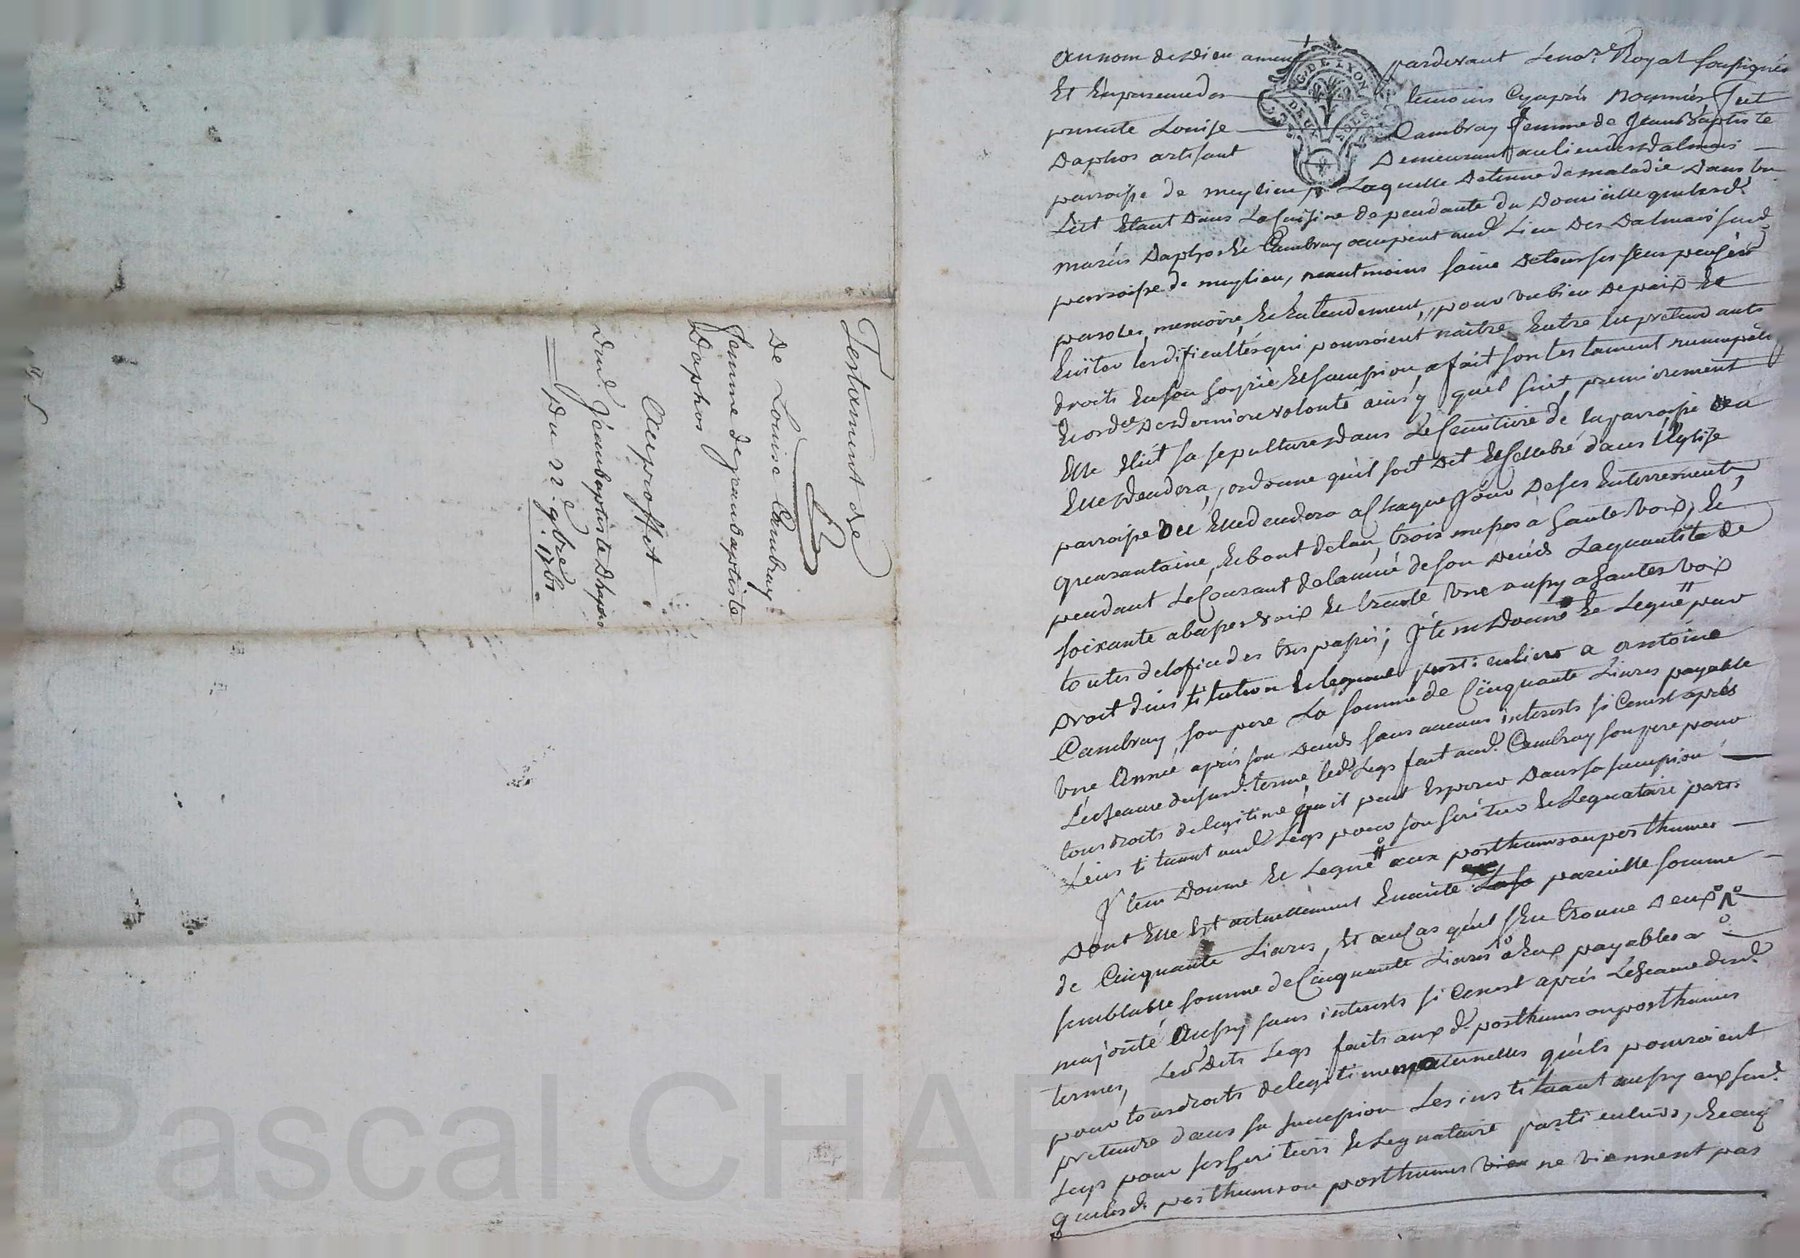 Testament de
De Louise Cambray
femme de jeanbaptiste
Daphos
Au proffit
dud. Jeanbaptiste Daphos
Du 22e 9bre 176
Au nom de Dieu amen pardevant Le nore. Royal soussigné
Et En presence des temoins Cyaprés nommés fut
presente Louise Cambray femme de Jean Baptiste
Daphos artisant Demeurant au lieu des dalmais
G. DE LYON
DEUX
parroisse de meylieu, Laquelle Detenue de maladie Dans un
Lit Etant Dans La Cuisine dependante du Domicille quelesd.
mariés Daphos Et Cambray occupent aud. Lieu Des Dalmais susd.
parroisse de meylieu, neantmoins saine De tous ses sens pensées
paroles, memoire, Et Entendement, pour un bien De paix Et
Eviter les dificultés qui pourroient naitre Entre les pretendants
droits En son hoyrie Et succession, a fait son testament nuncupatif
Et ord.ce De derniere volonté ainsy quil suit premierement
Elle Elit sa sepulture dans Le Cimitiere de la parroisse ou
Elle decedera, ordonne quil soit Dit Et Celebré dans L'Eglise
parroisse ou Elle decedera a Chaque Jour De ses Enterrement,
quarantaine, Et bout de lan, trois messes a haute voix, Et
pendant Le Courant de lannée de son Decés La quantité de
soixante a basses voix Et trante une aussy a hautes voix
toutes de lofice des trepassés; Item Donne Et Legue pour
Droit d'institution Et leguat particulier a antoine
Cambray son pere La somme de Cinquante Livres payable
Une Année aprés son Decés sans aucuns interests si Cenest aprés
L'echeance dusud. terme, led. Legs fait aud. Cambray son pere pour
tous droits de legitime quil peut Esperer Dans sa succession
L'instituant aud. Legs pour son heritier Et Legataire parer
Item Donne Et Legue aux posthumes ou posthumes
Dont Elle Est actuellement Enceinte pareille somme
de Cinquante Livres, Et au Cas quil s'En trouve Deux
semblable somme de Cinquante Livres a Eux payables a
majorité Aussy sans interests si Cenest aprés L'echeance dud.
termes, Lesdits Legs faits aux d. posthumes ou posthumes
pour tous droits de legitime maternelles quils pourroient
pretendre dans sa succession Les instituant aussy auxsusd.
Legs pour ses heritiers Et Legataire particuliers, Et au Cas
quelesd. posthumes ou posthumes ne viennent pas
Pascal CHAREYRON